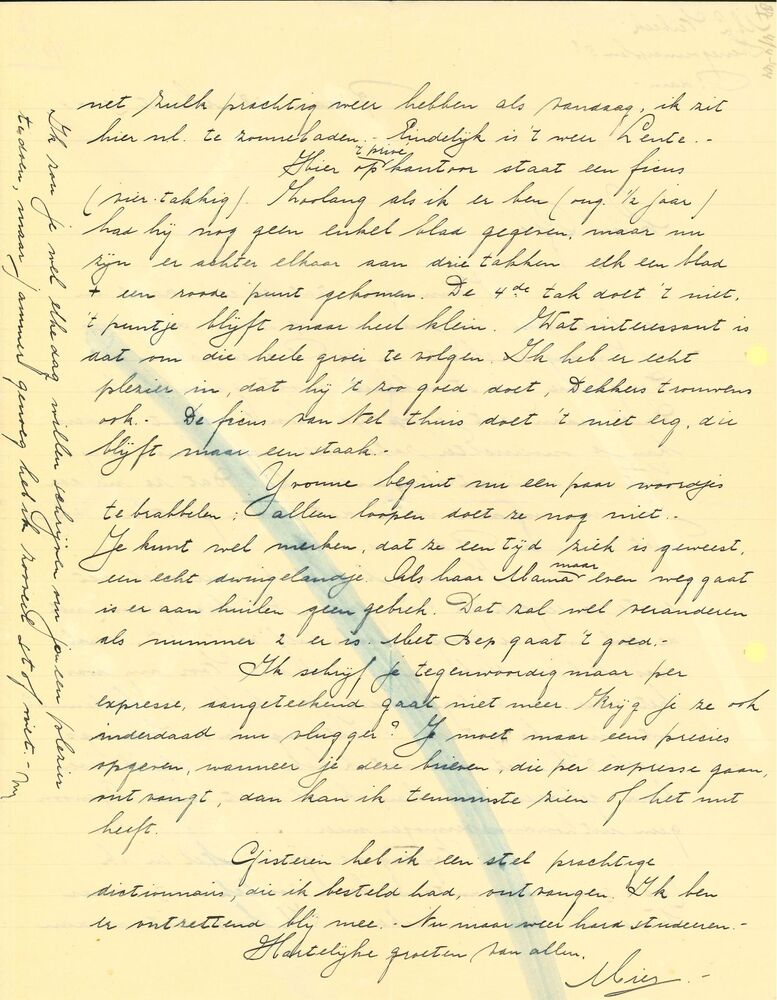 net zulk prachtig weer hebben als vandaag, ik zit
hier nl. te zonnebaden.- Eindelijk is 't weer Lente.-
Hier op 't privé kantoor staat een ficus
(vier-takkig). Zoolang als ik er ben (ong. ½ jaar)
had hij nog geen enkel blad gegeven, maar nu
zijn er achter elkaar aan drie takken elk een blad
+ een roode punt gekomen. De 4de tak doet 't niet,
't puntje blijft maar heel klein. Wat interessant is
dat om die heele groei te volgen. Ik heb er echt
plezier in, dat hij 't zoo goed doet, Dekkers trouwens
ook.- De ficus van Nel thuis doet 't niet erg, die
blijft maar een staak.-
Yvonne begint nu een paar woordjes
te brabbelen; alleen loopen doet ze nog niet.-
Je kunt wel merken, dat ze een tijd ziek is geweest,
een echt dwingelandje. Als haar Mama maar even weg gaat
is er aan huilen geen gebrek. Dat zal wel veranderen
als nummer 2 er is. Met Bep gaat 't goed.-
Ik schrijf je tegenwoordig maar per
expresse, aangeteekend gaat niet meer. Krijg je ze ook
inderdaad nu vlugger? Je moet maar eens precies
opgeven, wanneer je deze brieven, die per expresse gaan,
ontvangt, dan kan ik tenminste zien of het nut
heeft.
Gisteren heb ik een stel prachtige
dictionnairs, die ik besteld had, ontvangen. Ik ben
er ontzettend blij mee. Nu maar weer hard studeeren.-
Hartelijke groeten van allen,
Mies.-
Ik zou je wel elke dag willen schrijven om jou een plezier
te doen, maar jammer genoeg heb ik zooveel stof niet.-